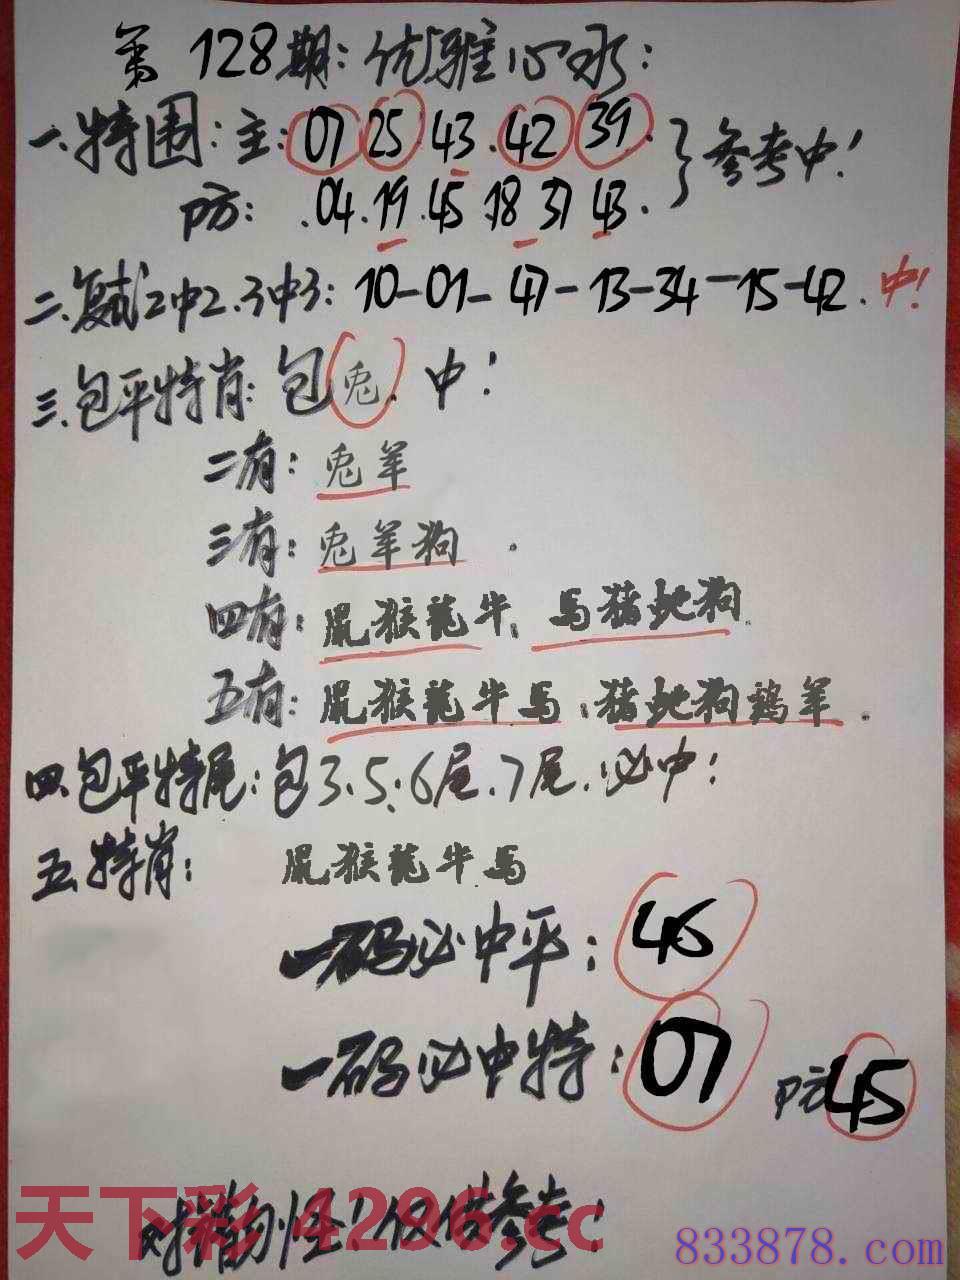 第128期：优雅心水：
一.特围：主：07 25 43.42 39. 参考中！
防：.04.19.45.18 37 43.
二.复试2中2.3中3：10-01-47-13-34-15-42.中！
三.包平特肖：包兔.中！
二有：兔羊
三有：兔羊狗.
四有：鼠猴龍牛.馬猪蛇狗.
五有：鼠猴龍牛馬.猪蛇狗鷄羊.
四.包平特尾：包3.5.6尾.7尾.必中！
五.特肖：鼠猴龍牛馬
一码必中平：46
一码必中特：07 防45
对错勿怪！仅供参考！
天下彩 4296.cc
833878.com